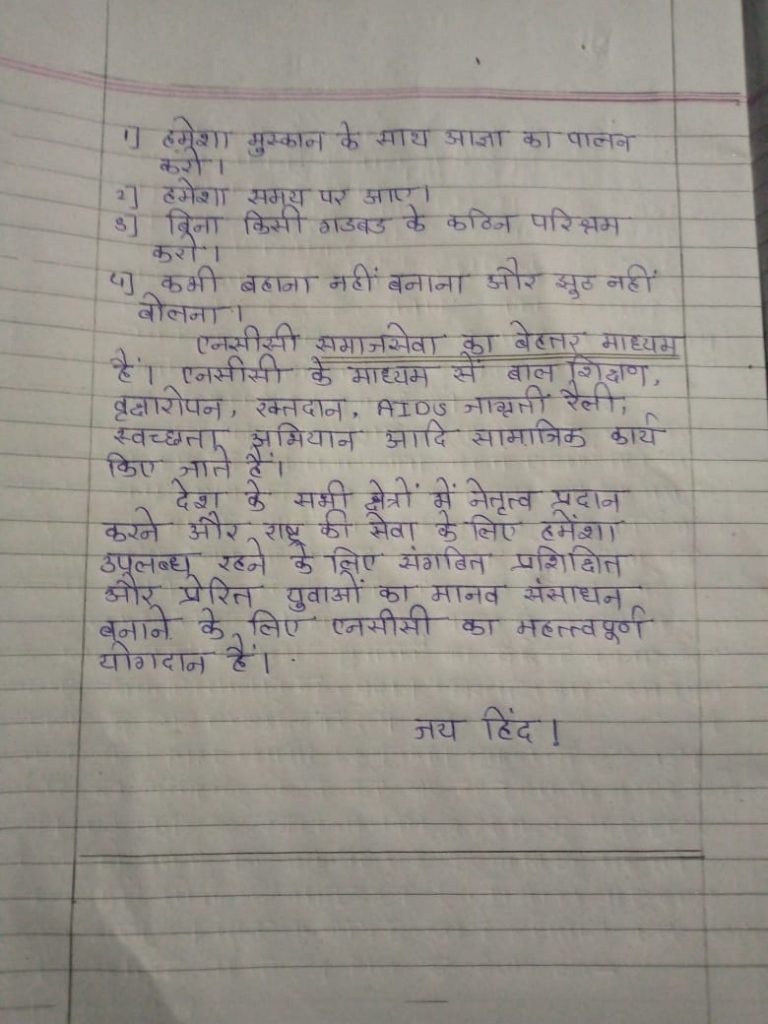 1] हमेशा मुस्कान के साथ आज्ञा का पालन
करो।
2] हमेशा समय पर आए।
3] बिना किसी गडबड के कठिन परिश्रम
करो।
4] कभी बहाना नहीं बनाना और झुठ नहीं
बोलना।
एनसीसी समाजसेवा का बेहतर माध्यम
हैं। एनसीसी के माध्यम से बाल शिक्षण,
वृक्षारोपन, रक्तदान, AIDS जाग्रती रैली,
स्वच्छता अभियान आदि सामाजिक कार्य
किए जाते हैं।
देश के सभी क्षेत्रों में नेतृत्व प्रदान
करने और राष्ट्र की सेवा के लिए हमेंशा
उपलब्ध रहने के लिए संगठित प्रशिक्षित
और प्रेरित युवाओं का मानव संसाधन
बनाने के लिए एनसीसी का महत्त्वपूर्ण
योगदान हैं।
जय हिंद!